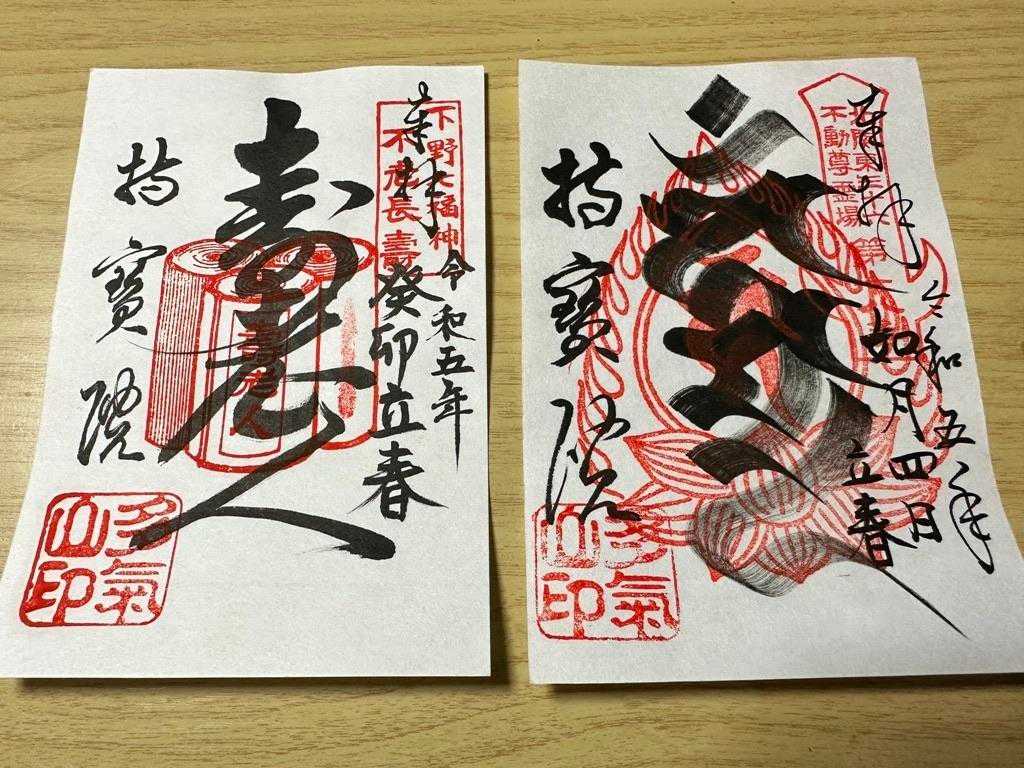 奉拝
下野七福神
不老長壽
令和五年
癸卯立春
寿老人
壽老人
持寳院
多氣
山印
奉拝
北関東三十六
不動尊霊場 第
令和五年
如月四日
立春
持寳院
多氣
山印